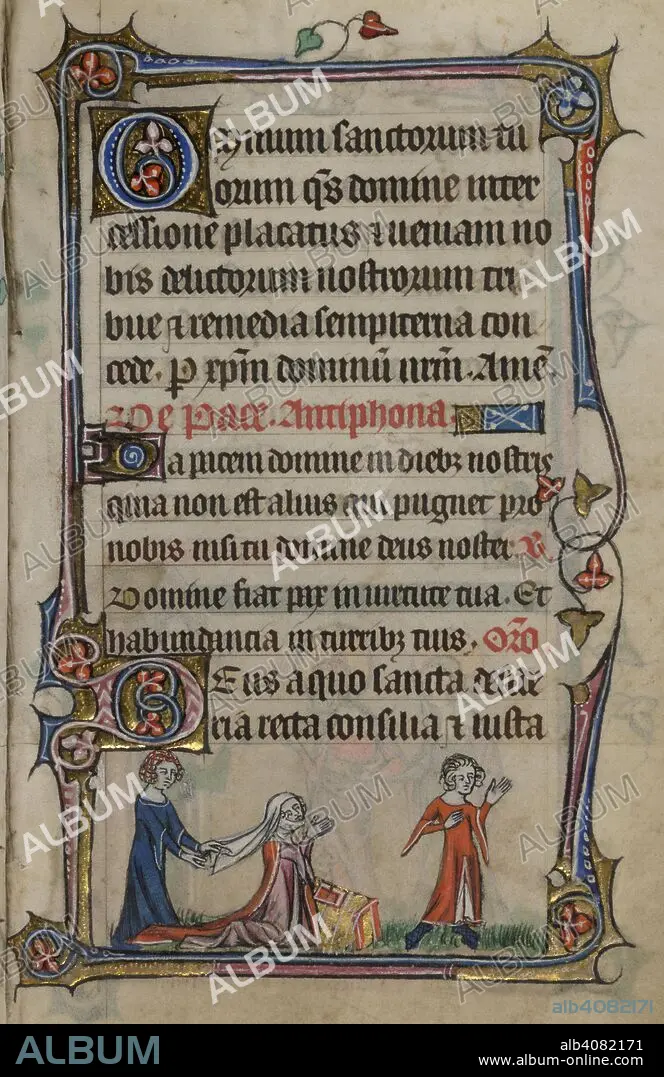 Omnium sanctorum tu
orum q̄s domine inter
cessione placatus ⁊ ueniam no
bis delictorum nostrorum tri
bue ⁊ remedia sempiterna con
cede. P xp̄m dominū nr̄m. Amē
De pace. Antiphona.
Da pacem domine in dieb⁊ nostris
quia non est alius qui pugnet pro
nobis nisi tu domine deus noster. V̄
Domine fiat pax in uirtute tua. Et
habundancia in turrib⁊ tuis. Or̄o
DEus a quo sancta deside
ria recta consilia ⁊ iusta
alb4082171
ALBUM
alb4082171
www.album-online.com